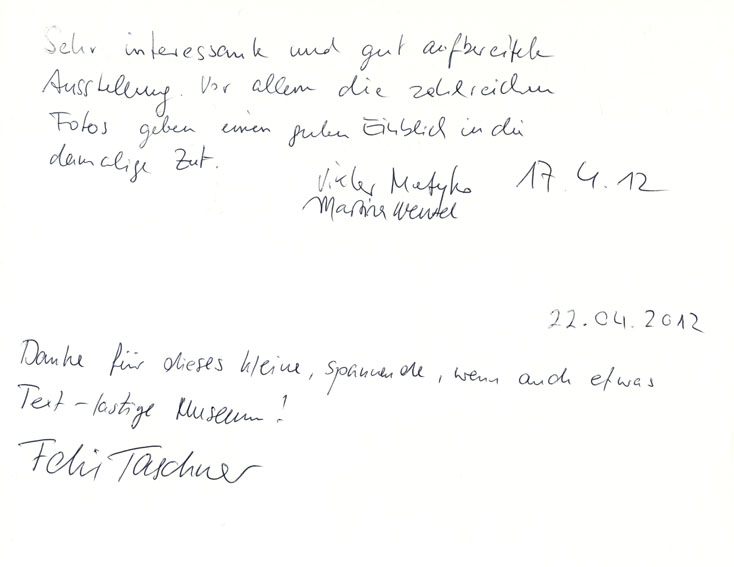 Sehr interessante und gut aufbereitete
Ausstellung. Vor allem die zahlreichen
Fotos geben einen guten Einblick in die
damalige Zeit.
Viktor Matyko 17.4.12
Martina Wenzel
22.04.2012
Danke für dieses kleine, spannende, wenn auch etwas
Text-lastige Museum!
Felix Taschner